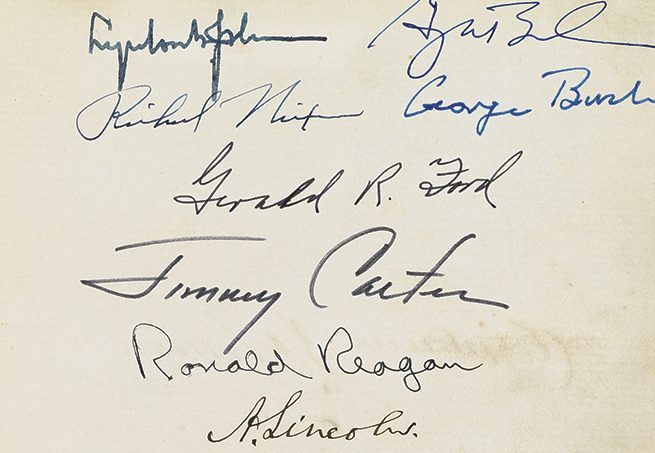 Lyndon B Johnson
Richard Nixon George Bush
Gerald R. Ford
Jimmy Carter
Ronald Reagan
A. Lincoln.